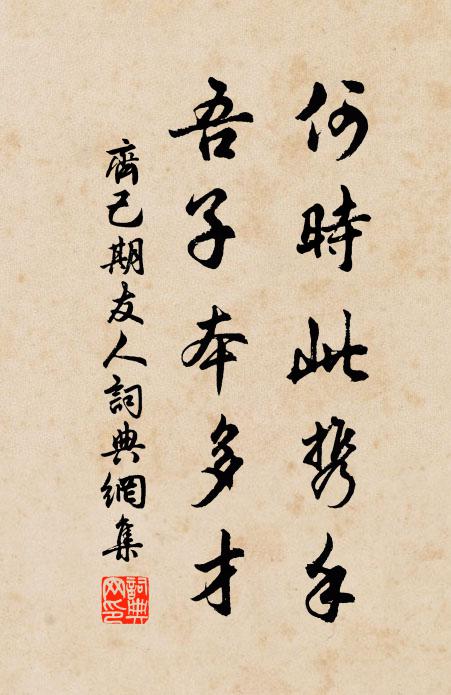 何時此携手
吾子本多才
齊己期友人詞典網集
詞典網印